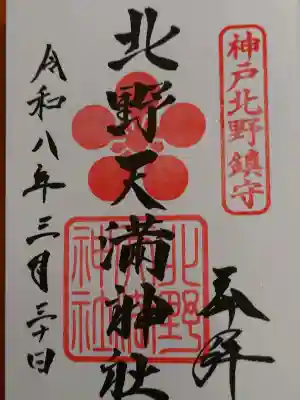 神戸北野鎮守
奉拝
北野天満神社
北野
天満
神社
令和八年三月三十日